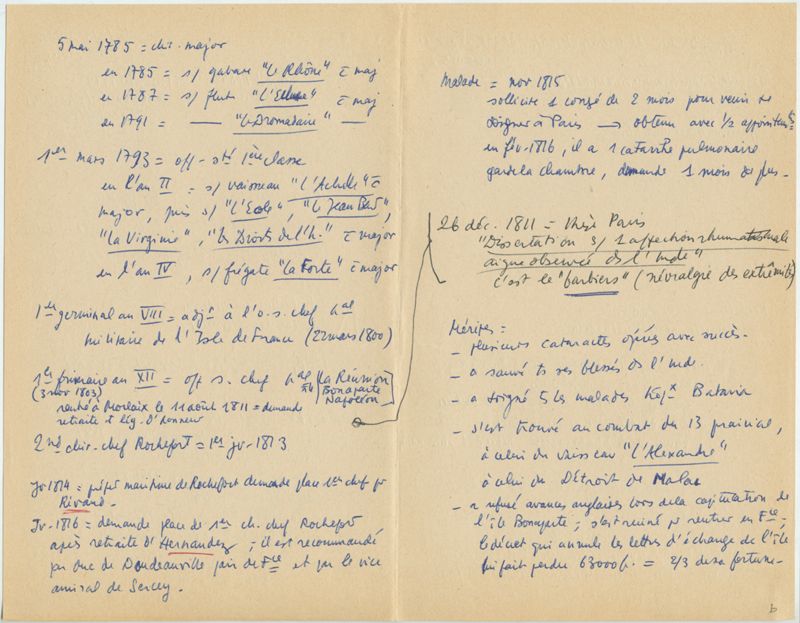 5 mai 1785 = chir. major
en 1785 = s/ gabare "Le Rhône" c̄ maj
en 1787 = s/ flute "L'Ecluse" c̄ maj
en 1791 = —— "Le Dromadaire" ——
1er mars 1793 = off-sté 1ère classe
en l'an II = s/ vaisseau "L'Achille" c̄
major, puis s/ "L'Eole", "Le Jean Bart",
"La Virginie", "Les Droits de l'h." c̄ major
en l'an IV, s/ frégate "La Forte" c̄ major
1er germinal an VIII = adjt à l'o.s. chef
militaire de l'Isle de France (22 mars 1800)
1er frimaire an XII = off s. chef (La Réunion
(3 nov 1803) Bonaparte
Napoléon)
rentré à Morlaix le 11 août 1811 = demande
retraite & lég. d'honneur
2nd chir. chef Rochefort = 1er jv-1813
Jv 1814 = préfet maritime de Rochefort demande place 1er chef pr
Rivaud.
Jv-1816 = demande place de 1er ch. chef Rochefort
après retraite d'Hernandez; il est recommandé
par duc de Doudeauville pair de Fce et par le vice
amiral de Sercey.
Malade = nov 1815
sollicite 1 congé de 2 mois pour venir se
soigner à Paris → obtenu avec 1/2 appointemts
en fév-1816, il a 1 catarrhe pulmonaire
garde la chambre, demande 1 mois de plus-
26 déc. 1811 = thèse Paris
"Dissertation s/ 1 affection rhumatismale
aigue observée ds l'Inde"
c'est le "barbiers" (névralgie des extrêmités)
Mérites =
- plusieurs cataractes opérées avec succès-
- a sauvé ts ses blessés ds l'Inde.
- a soigné ts les malades Batavia
- s'est trouvé au combat du 13 prairial,
à celui du vaisseau "L'Alexandre"
à celui du Détroit de Malac
- a refusé avances anglaises lors de la capitulation de
l'île Bonaparte; s'est ruiné pr rentrer en Fce;
le décret qui annule les lettres d'échange de l'île
lui fait perdre 63000 f. = 2/3 de sa fortune-
b